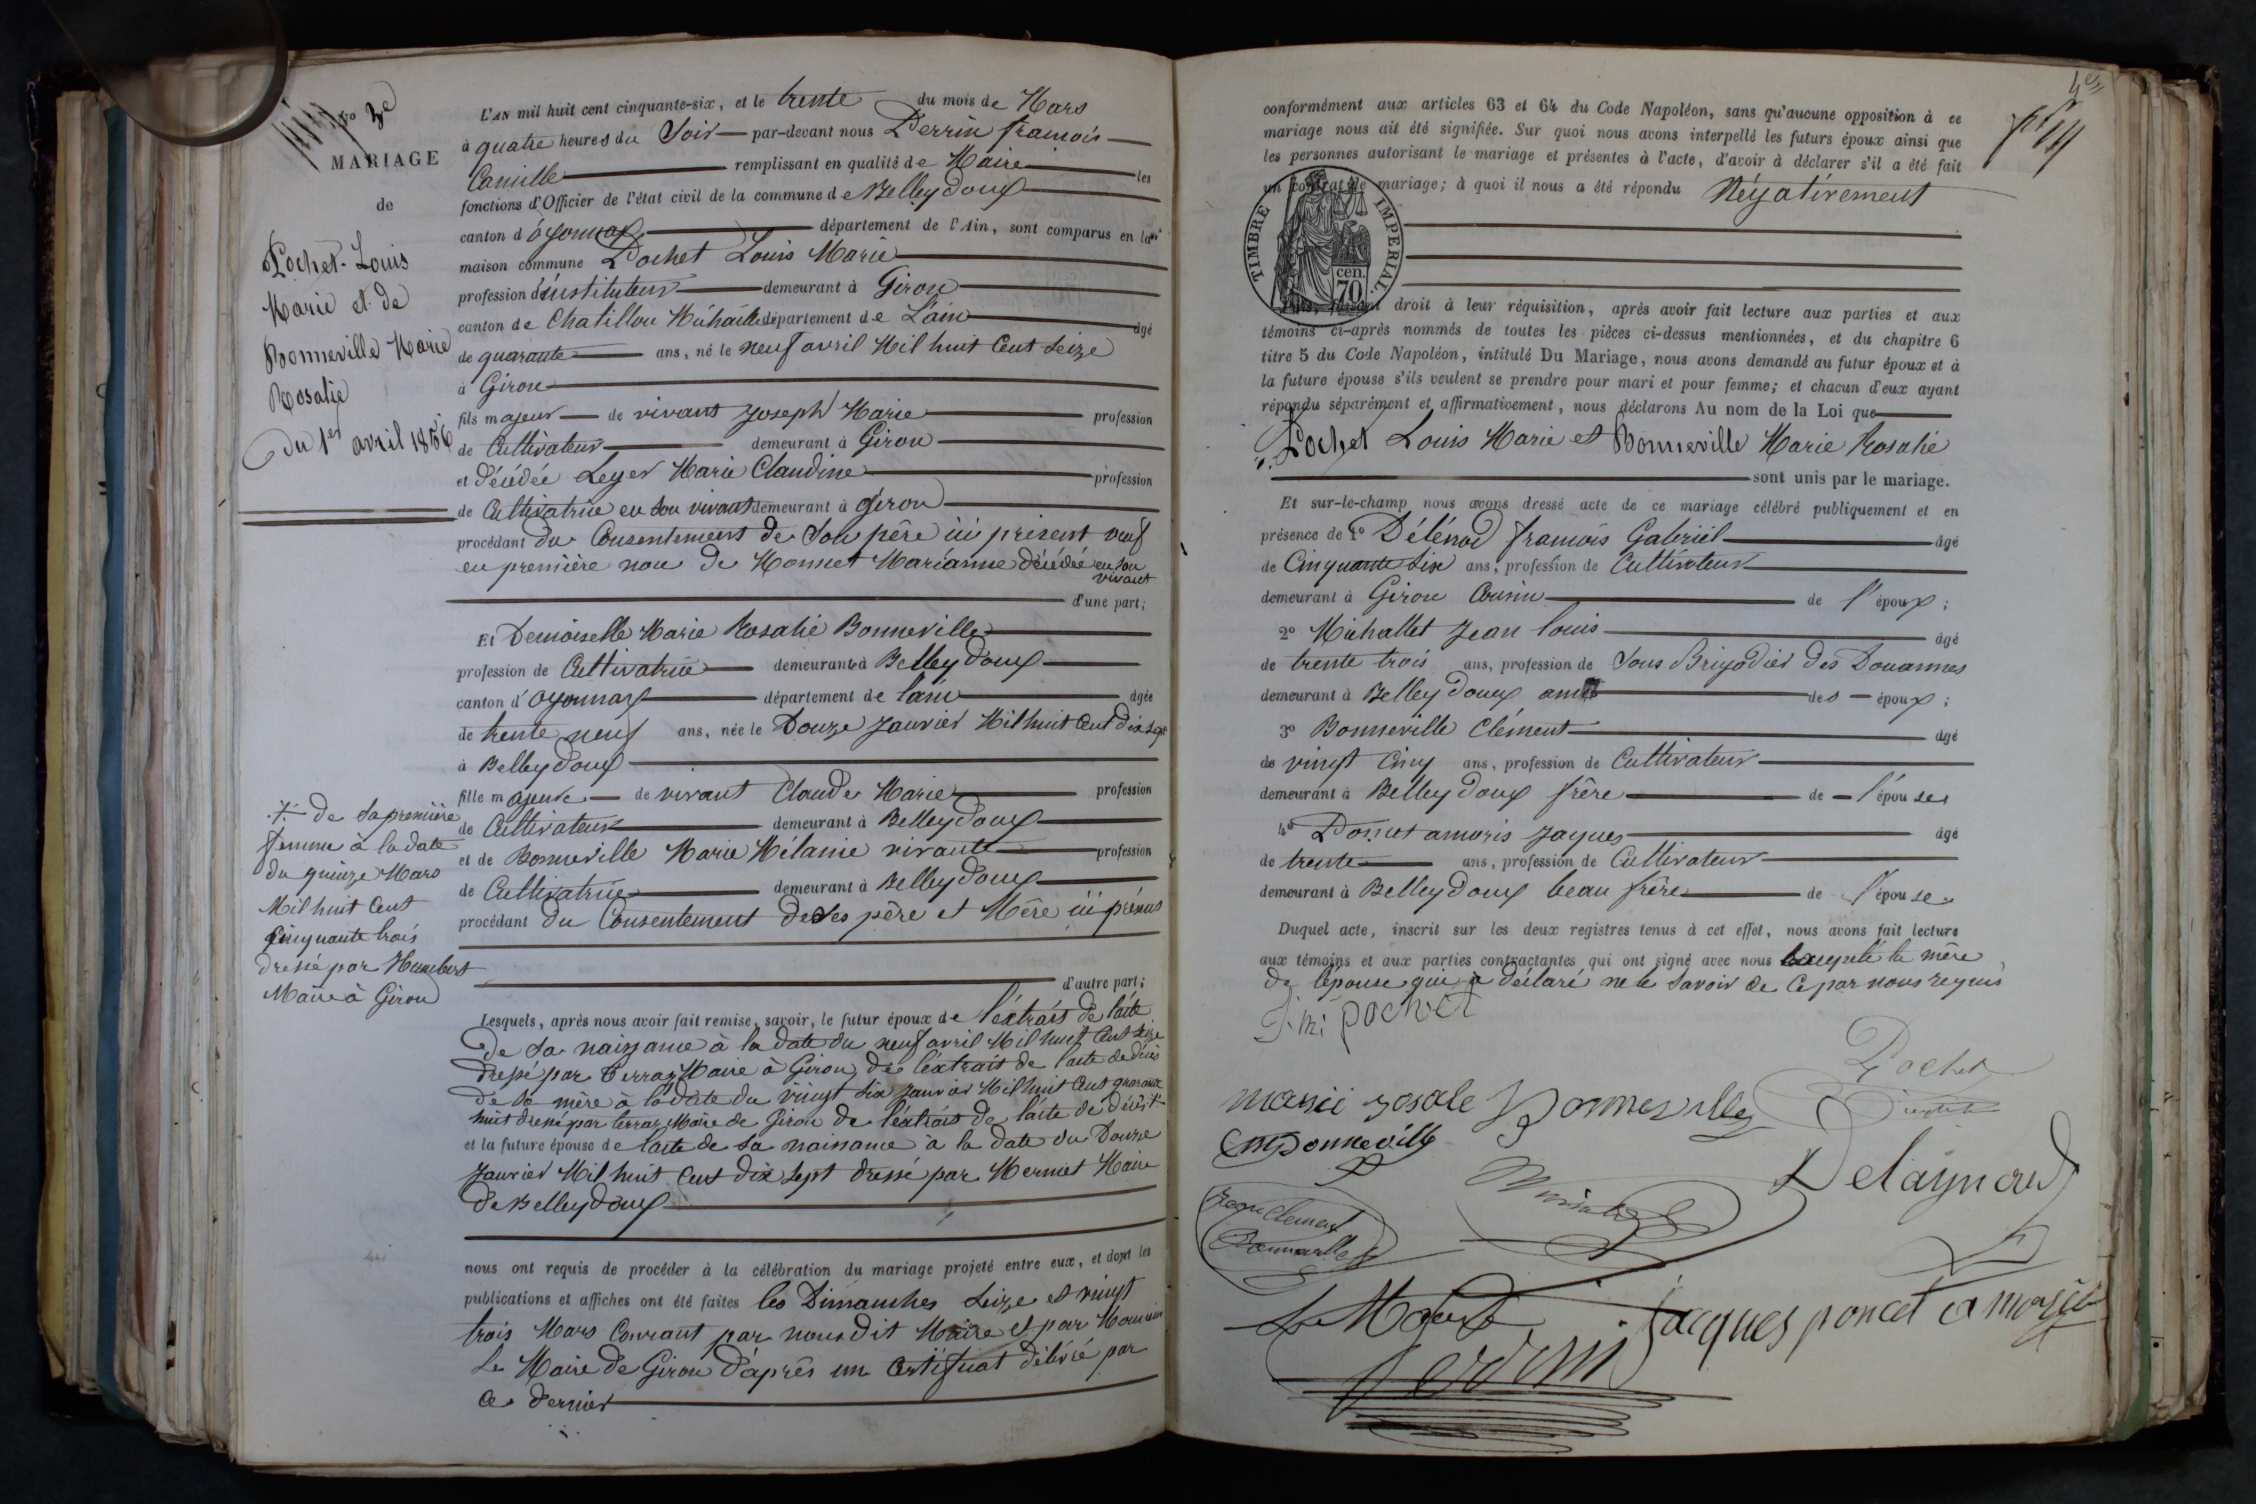 No 3e
MARIAGE
de
Pochet Louis
Marie et de
Bonneville Marie
Rosalie
du 1er avril 1856
L'AN mil huit cent cinquante-six, et le trente du mois de Mars
à quatre heures du Soir par-devant nous Perrin francois
Camille remplissant en qualité de Maire les
fonctions d'Officier de l'état civil de la commune de Belleydoux
canton d'oyonnax département de l'Ain, sont comparus en la
maison commune Pochet Louis Marie
profession d'instituteur demeurant à Giron
canton de Chatillon Michaille département de L'ain âgé
de quarante ans, né le neuf avril Mil huit Cent Seize
à Giron
fils majeur de vivant Joseph Marie profession
de Cultivateur demeurant à Giron
et décédée Leger Marie Claudine profession
de Cultivatrice en son vivant demeurant à Giron
procédant du Consentement de Son père ici présent veuf
en première nou de Monnet Marianne décédée en son
vivant
d'une part;
Et Demoiselle Marie Rosalie Bonneville
profession de Cultivatrice demeurant à Belleydoux
canton d'oyonnax département de l'ain agée
de trente neuf ans, née le Douze Janvier Mil huit Cent Dix Sept
à Belleydoux
fille majeure de vivant Claude Marie profession
de Cultivateur demeurant à Belleydoux
et de Bonneville Marie Mélanie vivante profession
de Cultivatrice demeurant à Belleydoux
procédant du Consentement de Ses père et Mère ici présents
d'autre part;
+ de sa première
femme à la date
du quinze Mars
Mil huit Cent
Cinquante trois
dressé par Humbert
Maire à Giron
Lesquels, après nous avoir fait remise, savoir, le futur époux de l'extrait de l'acte
de sa naissance à la date du neuf avril Mil huit Cent Seize
dressé par Terraz Maire à Giron, de l'extrait de l'acte de décès
de sa mère à la date du vingt six Janvier Mil huit Cent quarante
huit dressé par terraz Maire de Giron de l'extrait de l'acte de décès +
et la future épouse de l'acte de sa naissance à la date du Douze
Janvier Mil huit Cent dix Sept dressé par Mermet Maire
de Belleydoux
nous ont requis de procéder à la célébration du mariage projeté entre eux, et dont les
publications et affiches ont été faites les Dimanches Seize et vingt
trois Mars Courant par nous dit Maire et par Monsieur
Le Maire de Giron d'après un Certificat délivré par
Ce dernier
conformément aux articles 63 et 64 du Code Napoléon, sans qu'aucune opposition à ce
mariage nous ait été signifiée. Sur quoi nous avons interpellé les futurs époux ainsi que
les personnes autorisant le mariage et présentes à l'acte, d'avoir à déclarer s'il a été fait
un contrat de mariage; à quoi il nous a été répondu Négativement
TIMBRE IMPERIAL
70 cen.
Puis, faisant droit à leur réquisition, après avoir fait lecture aux parties et aux
témoins ci-après nommés de toutes les pièces ci-dessus mentionnées, et du chapitre 6
titre 5 du Code Napoléon, intitulé Du Mariage, nous avons demandé au futur époux et à
la future épouse s'ils veulent se prendre pour mari et pour femme; et chacun d'eux ayant
répondu séparément et affirmativement, nous déclarons Au nom de la Loi que
Pochet Louis Marie et Bonneville Marie Rosalie
sont unis par le mariage.
Et sur-le-champ nous avons dressé acte de ce mariage célébré publiquement et en
présence de 1o Délénod francois Gabriel âgé
de Cinquante Six ans, profession de Cultivateur
demeurant à Giron Cousin de l'époux;
2o Michallet Jean Louis âgé
de trente trois ans, profession de Sous Brigadier des Douannes
demeurant à Belleydoux ami des époux;
3o Bonneville Clément âgé
de vingt Cinq ans, profession de Cultivateur
demeurant à Belleydoux frère de l'épouse
4o Poncet amoris Jaques âgé
de trente ans, profession de Cultivateur
demeurant à Belleydoux beau frère de l'épouse
Duquel acte, inscrit sur les deux registres tenus à cet effet, nous avons fait lecture
aux témoins et aux parties contractantes qui ont signé avec nous excepté la mère
de l'épouse qui a déclaré ne le Savoir de Ce par nous requis
J. m. pochet
Pochet
marie rosalie Bonneville
Cm Bonneville
Delaynoud
Jean Clement
Bonneville
Le Maire
Perrin
jacques poncet amoris